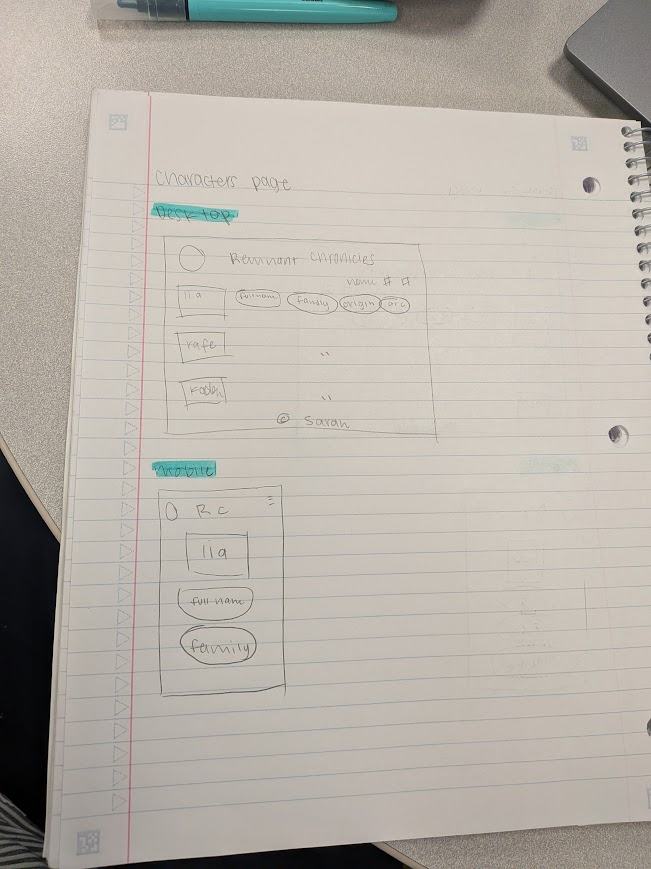 characters page
Desktop
Remnant chronicles
name # #
lia fullname family origin arc
rafe "
kaden "
© sarah
mobile
RC
lia
full name
family